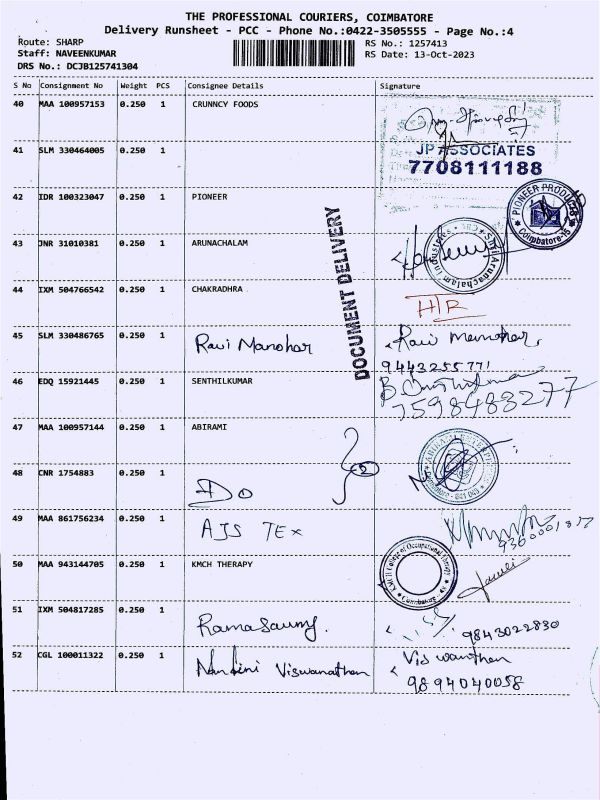 THE PROFESSIONAL COURIERS, COIMBATORE
Delivery Runsheet - PCC - Phone No.:0422-3505555 - Page No.:4
Route: SHARP
Staff: NAVEENKUMAR
DRS No.: DCJB125741304
RS No.: 1257413
RS Date: 13-Oct-2023
S No Consignment No Weight PCS Consignee Details Signature
40 MAA 100957153 0.250 1 CRUNNCY FOODS
41 SLM 330464005 0.250 1
JP ASSOCIATES
7708111188
42 IDR 100323047 0.250 1 PIONEER
PIONEER PRODUCTS
Coimbatore-15
DOCUMENT DELIVERY
43 JNR 31010381 0.250 1 ARUNACHALAM
Shri Arunachalam Industries
44 IXM 504766542 0.250 1 CHAKRADHRA
H/R
45 SLM 330486765 0.250 1 Ravi Manohar Ravi Manohar
9443255771
46 EDQ 15921445 0.250 1 SENTHILKUMAR
7598488277
47 MAA 100957144 0.250 1 ABIRAMI
2
48 CNR 1754883 0.250 1 Do
49 MAA 861756234 0.250 1 AJS TEX
50 MAA 943144705 0.250 1 KMCH THERAPY
KMCH College of Occupational Therapy
Coimbatore
51 IXM 504817285 0.250 1 Ramasamy. 9843022830
52 CGL 100011322 0.250 1 Nandini Viswanathan Viswanthan
9894040058